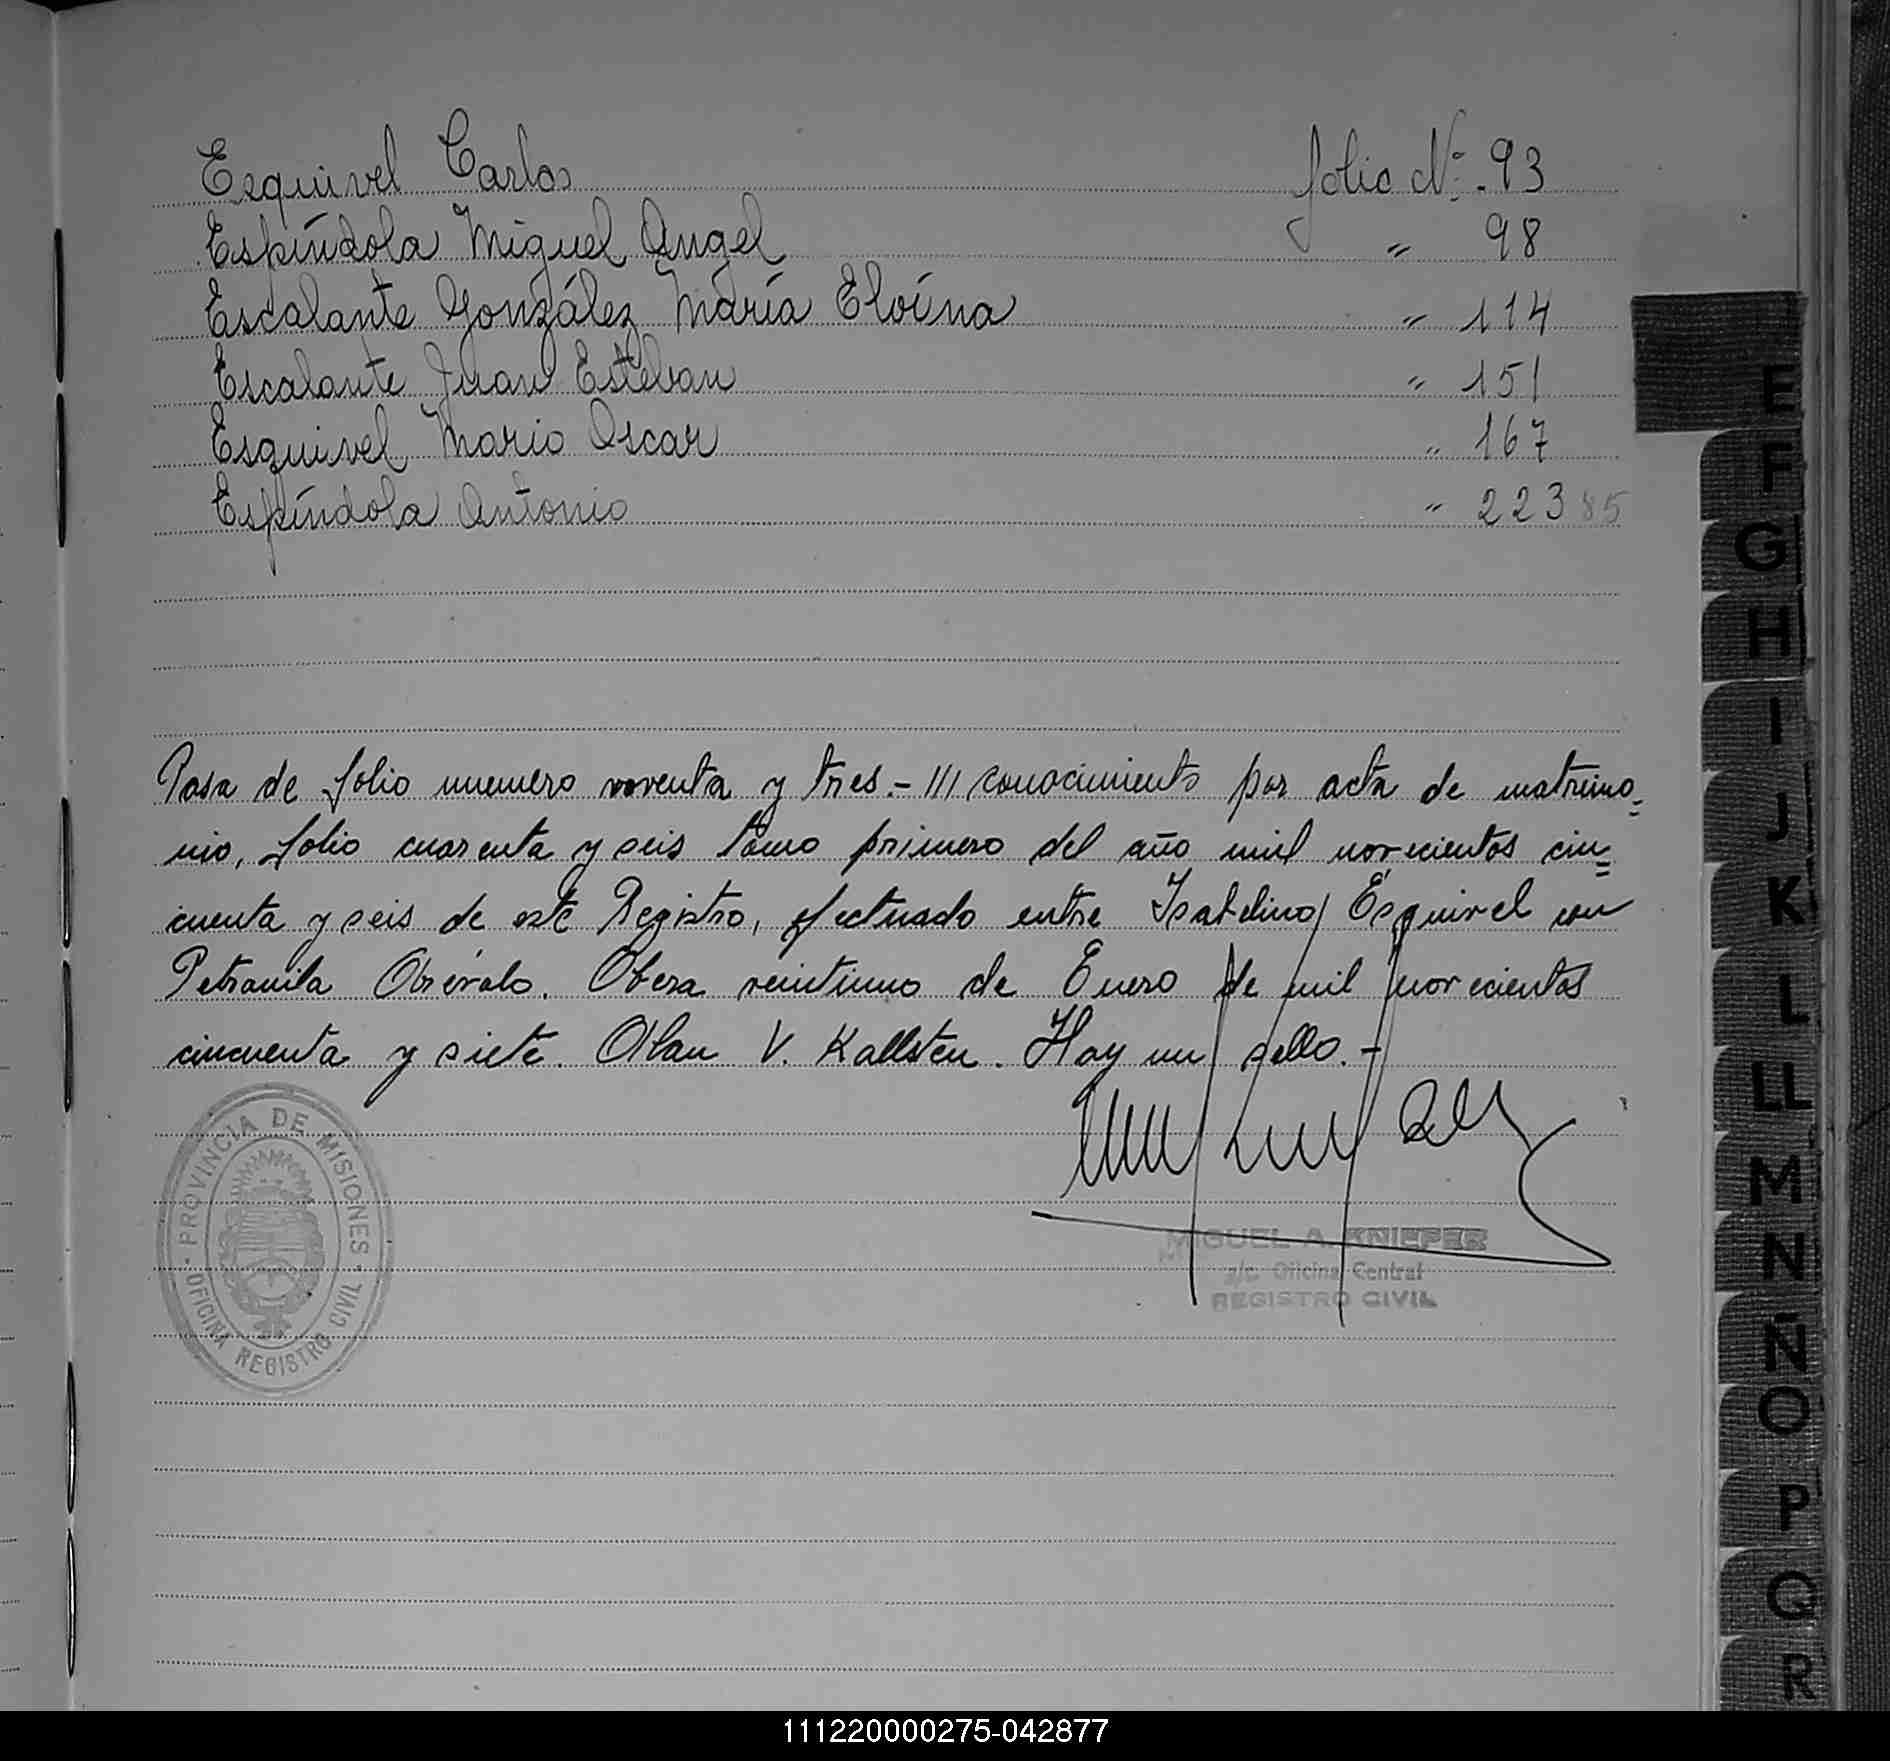 Esquivel Carlos folio Nº. 93
Espíndola Miguel Angel " 98
Escalante González María Eloína " 114
Escalante Juan Esteban " 151
Esquivel Mario Oscar " 167
Espíndola Antonio " 223 85
Pasa de folio numero noventa y tres.- /// conocimiento por acta de matrimo=
nio, folio cuarenta y seis tomo primero del año mil novecientos cin=
cuenta y seis de este Registro, efectuado entre Isabelino Esquivel con
Petronila. Obera veintiuno de Enero de mil novecientos
cincuenta y siete. Olan V. Kallsten. Hay un sello.-
PROVINCIA DE MISIONES
OFICINA REGISTRO CIVIL
MIGUEL A. KNIEPER
a/c. Oficina Central
REGISTRO CIVIL
E
F
G
H
I
J
K
L
LL
M
N
Ñ
O
P
Q
R
111220000275-042877